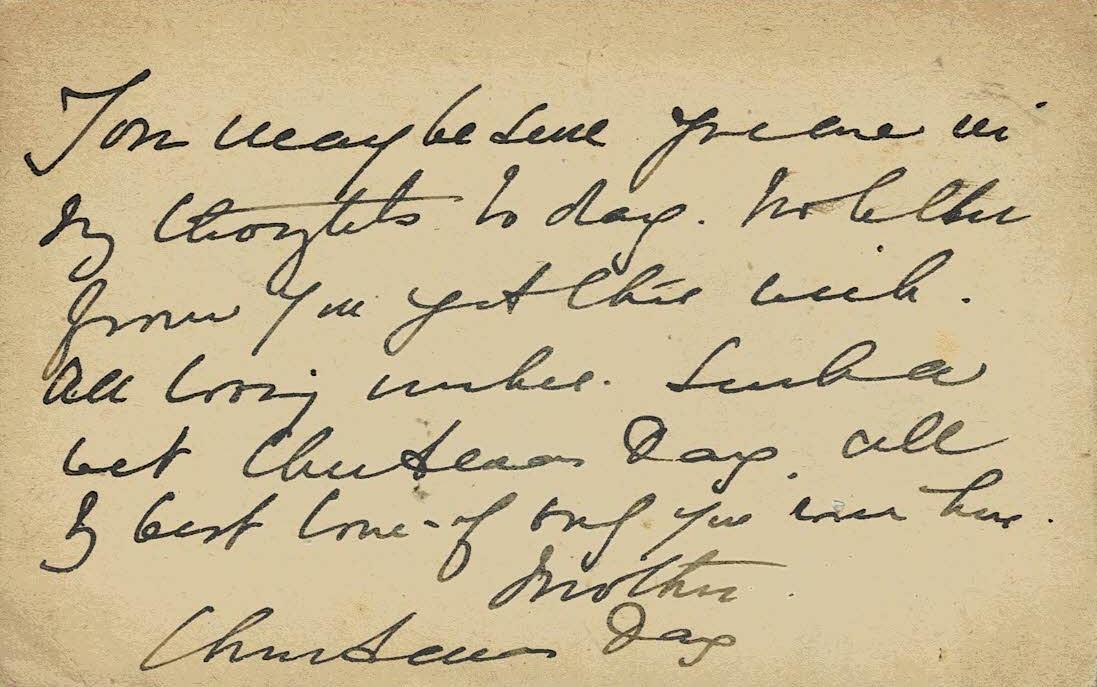 You may be sure you are in
my thoughts to day. No letter
from you yet this week.
All loving wishes. Such a
wet Christmas Day. all
My best love - if only you were here.
Mother.
Christmas Day